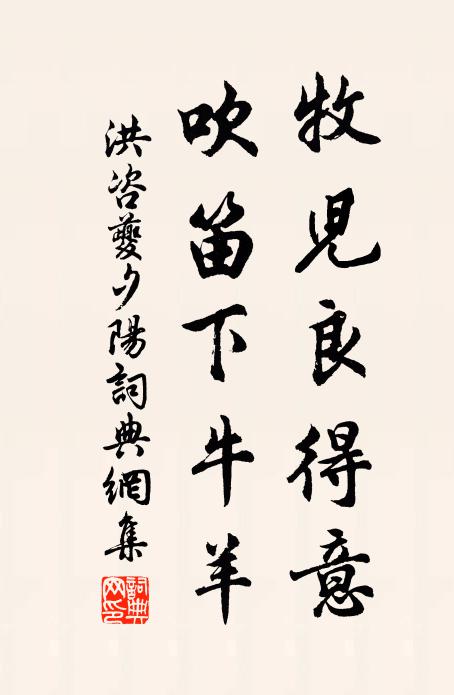 牧兒良得意
吹笛下牛羊
洪咨夔夕陽詞典網集
詞典網印